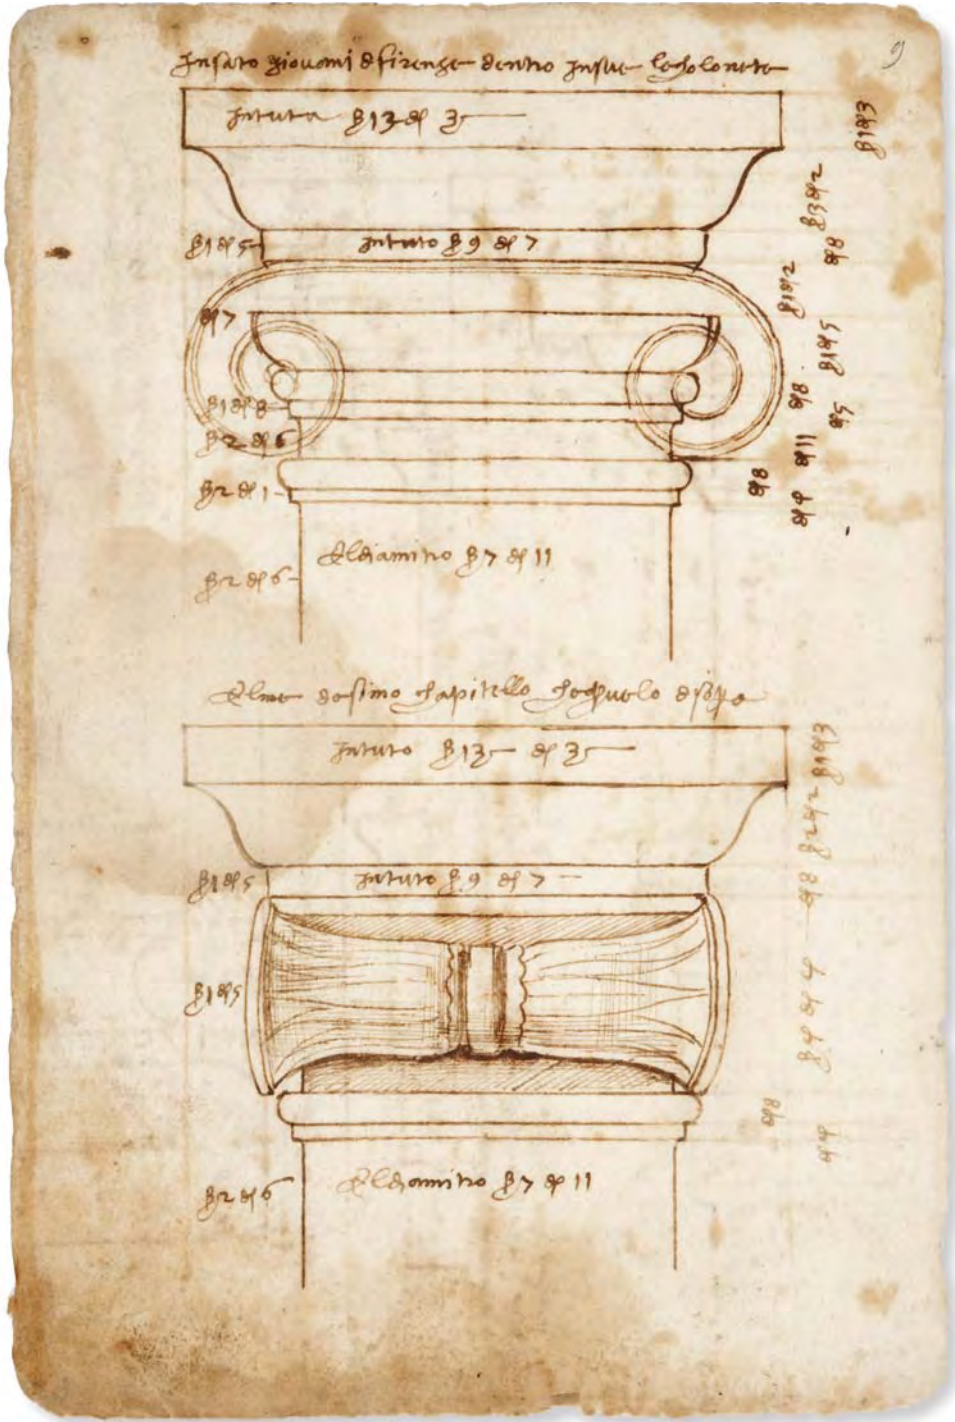 9
Insato giovani d firenze dentro insue lecholonete
intuta g 13 d 3
g1 d 5
intuto g 9 d 7
d 7
g1 d 8
g2 d 6
g2 d 1
El diamitro g 7 d 11
g2 d 6
g1 d 3
g3 d 2
d 8
g1 d 2
g1 d 5
d 8
d 5
d 11
d 8
d 4
El me desimo chapitello che quelo disopa
intuto g 13 d 3
g1 d 5
intuto g 9 d 7
g1 d 5
g2 d 6
El diamitro g 7 d 11
g1 d 3
g2 d 2
d 8
g4 d 4
d 8
d 4